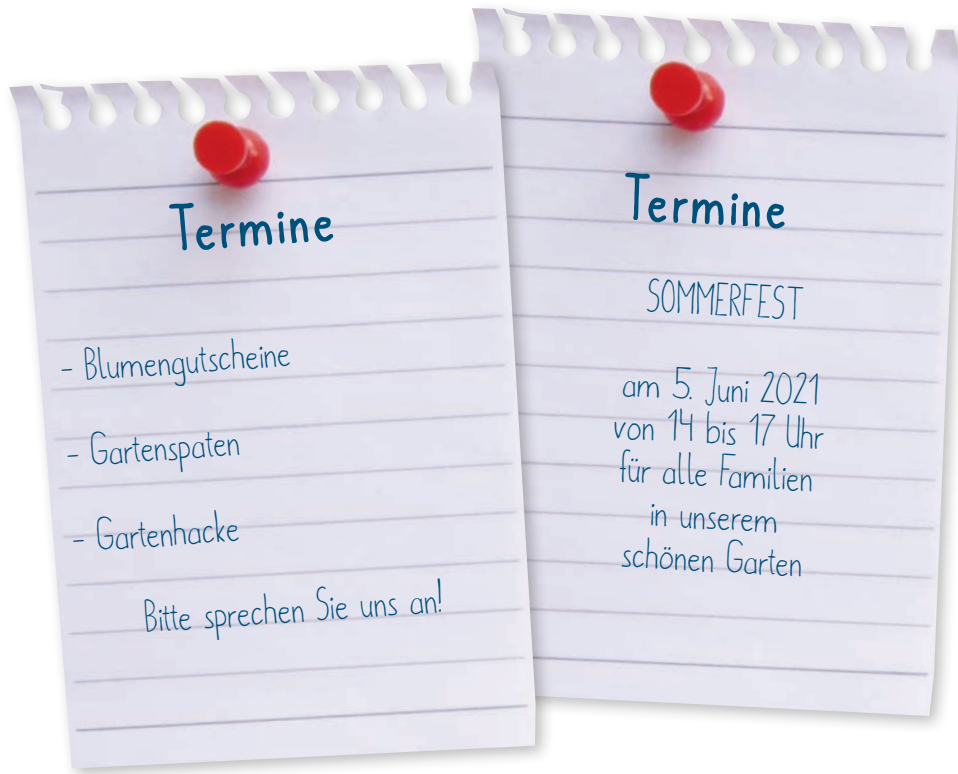 Termine
- Blumengutscheine
- Gartenspaten
- Gartenhacke
Bitte sprechen Sie uns an!
Termine
SOMMERFEST
am 5. Juni 2021
von 14 bis 17 Uhr
für alle Familien
in unserem
schönen Garten